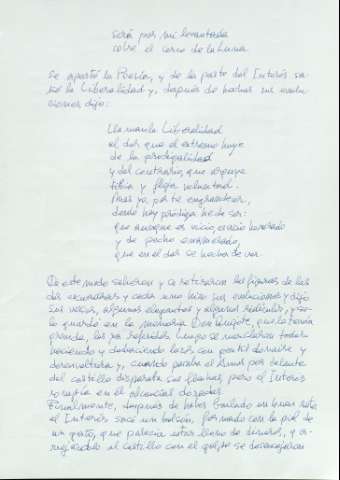 será por mí levantada
sobre el cerco de la Luna.
Se apartó la Poesía, y de la parte del Interés sa-
lió la Liberalidad y, después de hechas sus mudan-
ciones dijo:
Llámanla Liberalidad
al dar que el extremo huye
de la prodigalidad
y del contrario, que arguye
tibia y floja voluntad.
Mas yo, por te engrandecer,
desde hoy pródiga he de ser:
que aunque es vicio, es vicio honrado
y de pecho enamorado,
que en el dar se echa de ver.
De este modo salieron y se retiraron las figuras de las
dos escuadras y cada uno hizo sus evoluciones y dijo
sus versos, algunos elegantes y algunos ridículos, y so-
lo guardó en la memoria Don Quijote, que la tenía
grande, los ya referidos. Luego se mezclaron todos
haciendo y deshaciendo lazos con gentil donaire y
desenvoltura y, cuando pasaba el Amor por delante
del castillo disparaba sus flechas, pero el Interés
rompía en él alcancías doradas.
Finalmente, después de haber bailado un buen rato
el Interés sacó un bolsón, formado con la piel de
un gato, que parecía estar lleno de dinero, y a-
rrojándolo al castillo con el golpe se desencajaron